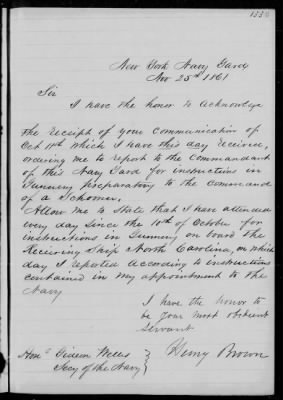 New York Navy Yard
Nov 25th 1861
Sir
I have the honor to acknowledge
the receipt of your communication of
Oct 11th which I have this day received,
ordering me to report to the Commandant
of this Navy Yard for instructions in
Gunnery preparatory to the command
of a Schooner.
Allow me to state that I have attended
every day since the 10th of October for
instructions in Gunnery on board the
Receiving Ship North Carolina, on which
day I reported according to instructions
contained in my appointment to the
Navy
I have the honor to
be your most obedient
servant
Henry Brown
Hon. Gideon Welles
Secy of the Navy